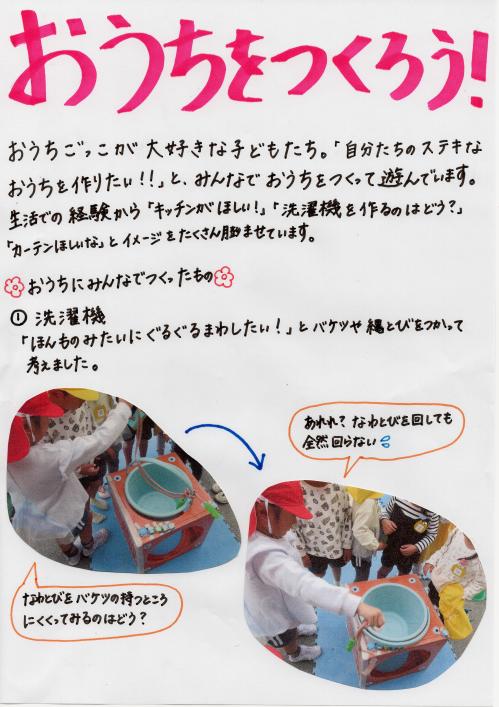 おうちをつくろう!
おうちごっこが大好きな子どもたち。「自分たちのステキな
おうちを作りたい!!」と、みんなでおうちをつくって遊んでいます。
生活での経験から「キッチンがほしい!」「洗濯機を作るのはどう?」
「カーテンほしいな」とイメージをたくさん膨ませています。
おうちにみんなでつくったもの
① 洗濯機
「ほんものみたいにぐるぐるまわしたい!」とバケツや縄とびをつかって
考えました。
あれれ?なわとびを回しても
全然回らない
なわとびをバケツの持つところ
にくくってみるのはどう?